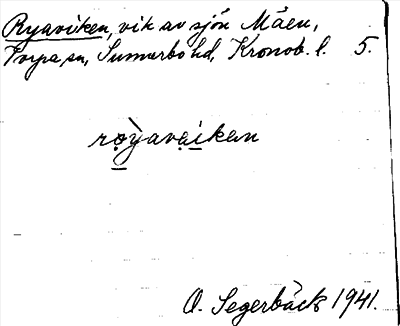 Ryaviken, vik av sjön Måen,
Torpa sn, Sunnerbo hd, Kronob. l. 5.
rọ̀yavạiken
O. Segerbäck 1941.